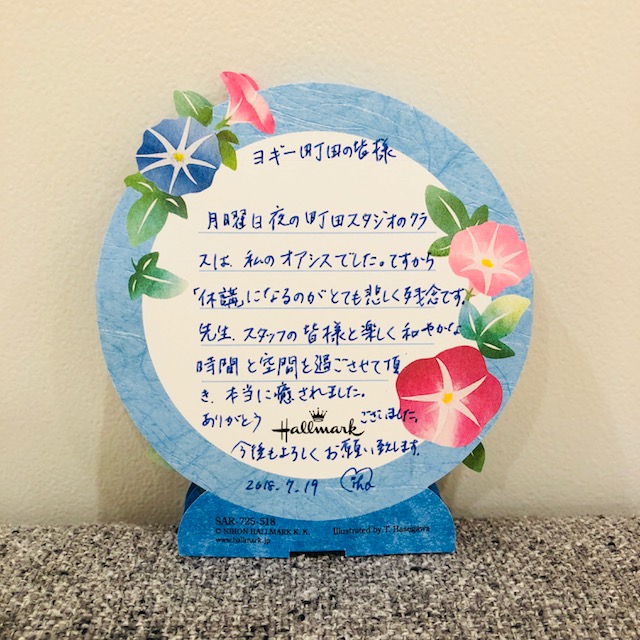 ヨギー町田の皆様
月曜日夜の町田スタジオのクラ
スは、私のオアシスでした。ですから
「休講」になるのがとても悲しく残念です。
先生、スタッフの皆様と楽しく和やかな
時間と空間を過ごさせて頂
き、本当に癒されました。
ありがとう Hallmark ございました。
今後もよろしくお願い致します。
2018.7.19 Miho
SAR-725-518
© NIHON HALLMARK K. K. Illustrated by T. Hasegawa
www.hallmark.jp